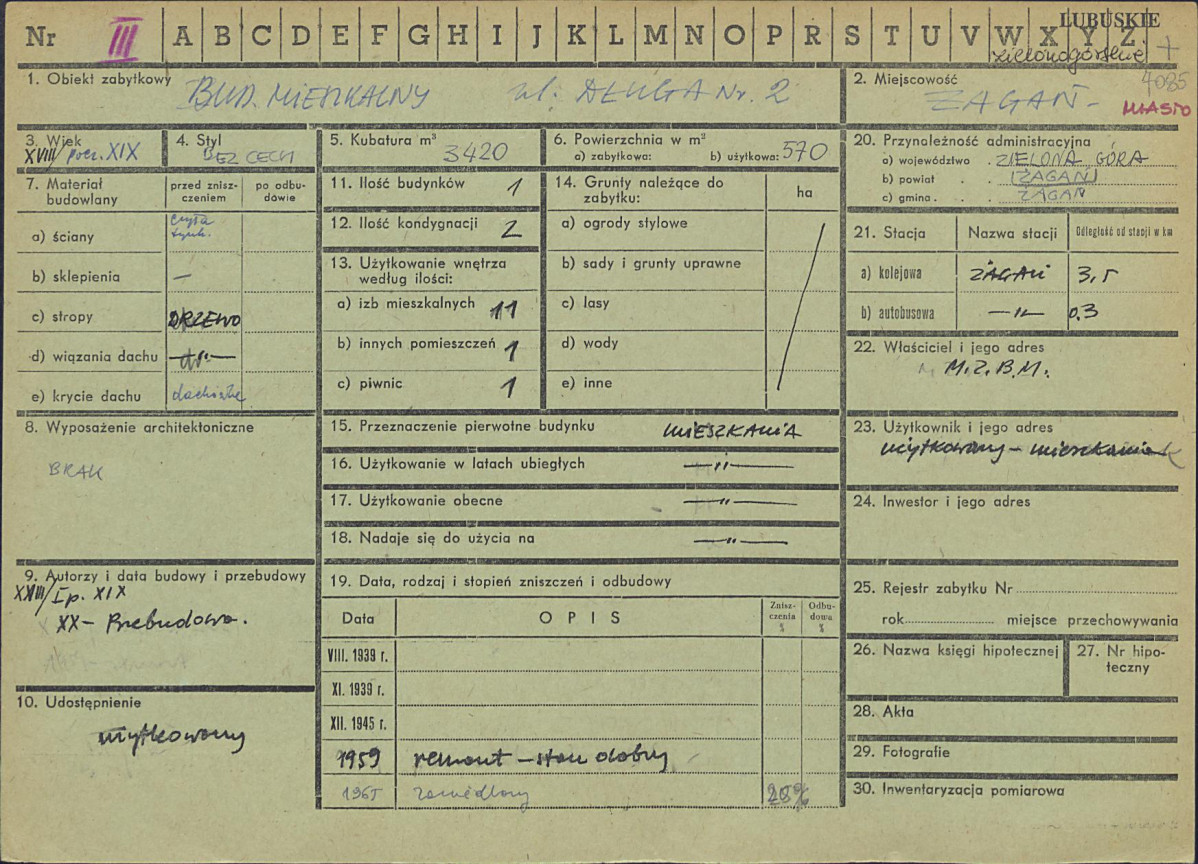 Nr III A B C D E F G H I J K L M N O P R S T U V W X Y Z
LUBUSKIE
zielonogórskie +
4085
1. Obiekt zabytkowy BUD. MIESZKALNY ul. DŁUGA Nr. 2
2. Miejscowość
ŻAGAŃ -
MIASTO
3. Wiek
XVIII/pocz. XIX
4. Styl
BEZ CECH
5. Kubatura m³
3420
6. Powierzchnia w m²
a) zabytkowa: b) użytkowa: 570
7. Materiał budowlany
przed znisz-
czeniem
po odbu-
dowie
a) ściany cegła
tynk.
b) sklepienia —
c) stropy DRZEWO
d) wiązania dachu —"—
e) krycie dachu dachówka
8. Wyposażenie architektoniczne
BRAK
9. Autorzy i data budowy i przebudowy
XVIII/Ip. XIX
XX - Przebudowa.
10. Udostępnienie
użytkowany
11. Ilość budynków 1
12. Ilość kondygnacji 2
13. Użytkowanie wnętrza
według ilości:
a) izb mieszkalnych 11
b) innych pomieszczeń 1
c) piwnic 1
14. Grunty należące do
zabytku:
ha
a) ogrody stylowe
b) sady i grunty uprawne
c) lasy
d) wody
e) inne
15. Przeznaczenie pierwotne budynku MIESZKANIA
16. Użytkowanie w latach ubiegłych —"—
17. Użytkowanie obecne —"—
18. Nadaje się do użycia na —"—
19. Data, rodzaj i stopień zniszczeń i odbudowy
Data OPIS
Znisz-
czenia
%
Odbu-
dowa
%
VIII. 1939 r.
XI. 1939 r.
XII. 1945 r.
1959 remont - stan dobry
1965 zaniedbany 25%
20. Przynależność administracyjna
a) województwo . ZIELONA GÓRA
b) powiat . . (ŻAGAŃ)
c) gmina . . ŻAGAŃ
21. Stacja Nazwa stacji Odległość od stacji w km
a) kolejowa ŻAGAŃ 3,5
b) autobusowa —"— 0.3
22. Właściciel i jego adres
M.Z.B.M.
23. Użytkownik i jego adres
użytkowany - mieszkania
24. Inwestor i jego adres
25. Rejestr zabytku Nr
rok miejsce przechowywania
26. Nazwa księgi hipotecznej
27. Nr hipo-
teczny
28. Akta
29. Fotografie
30. Inwentaryzacja pomiarowa